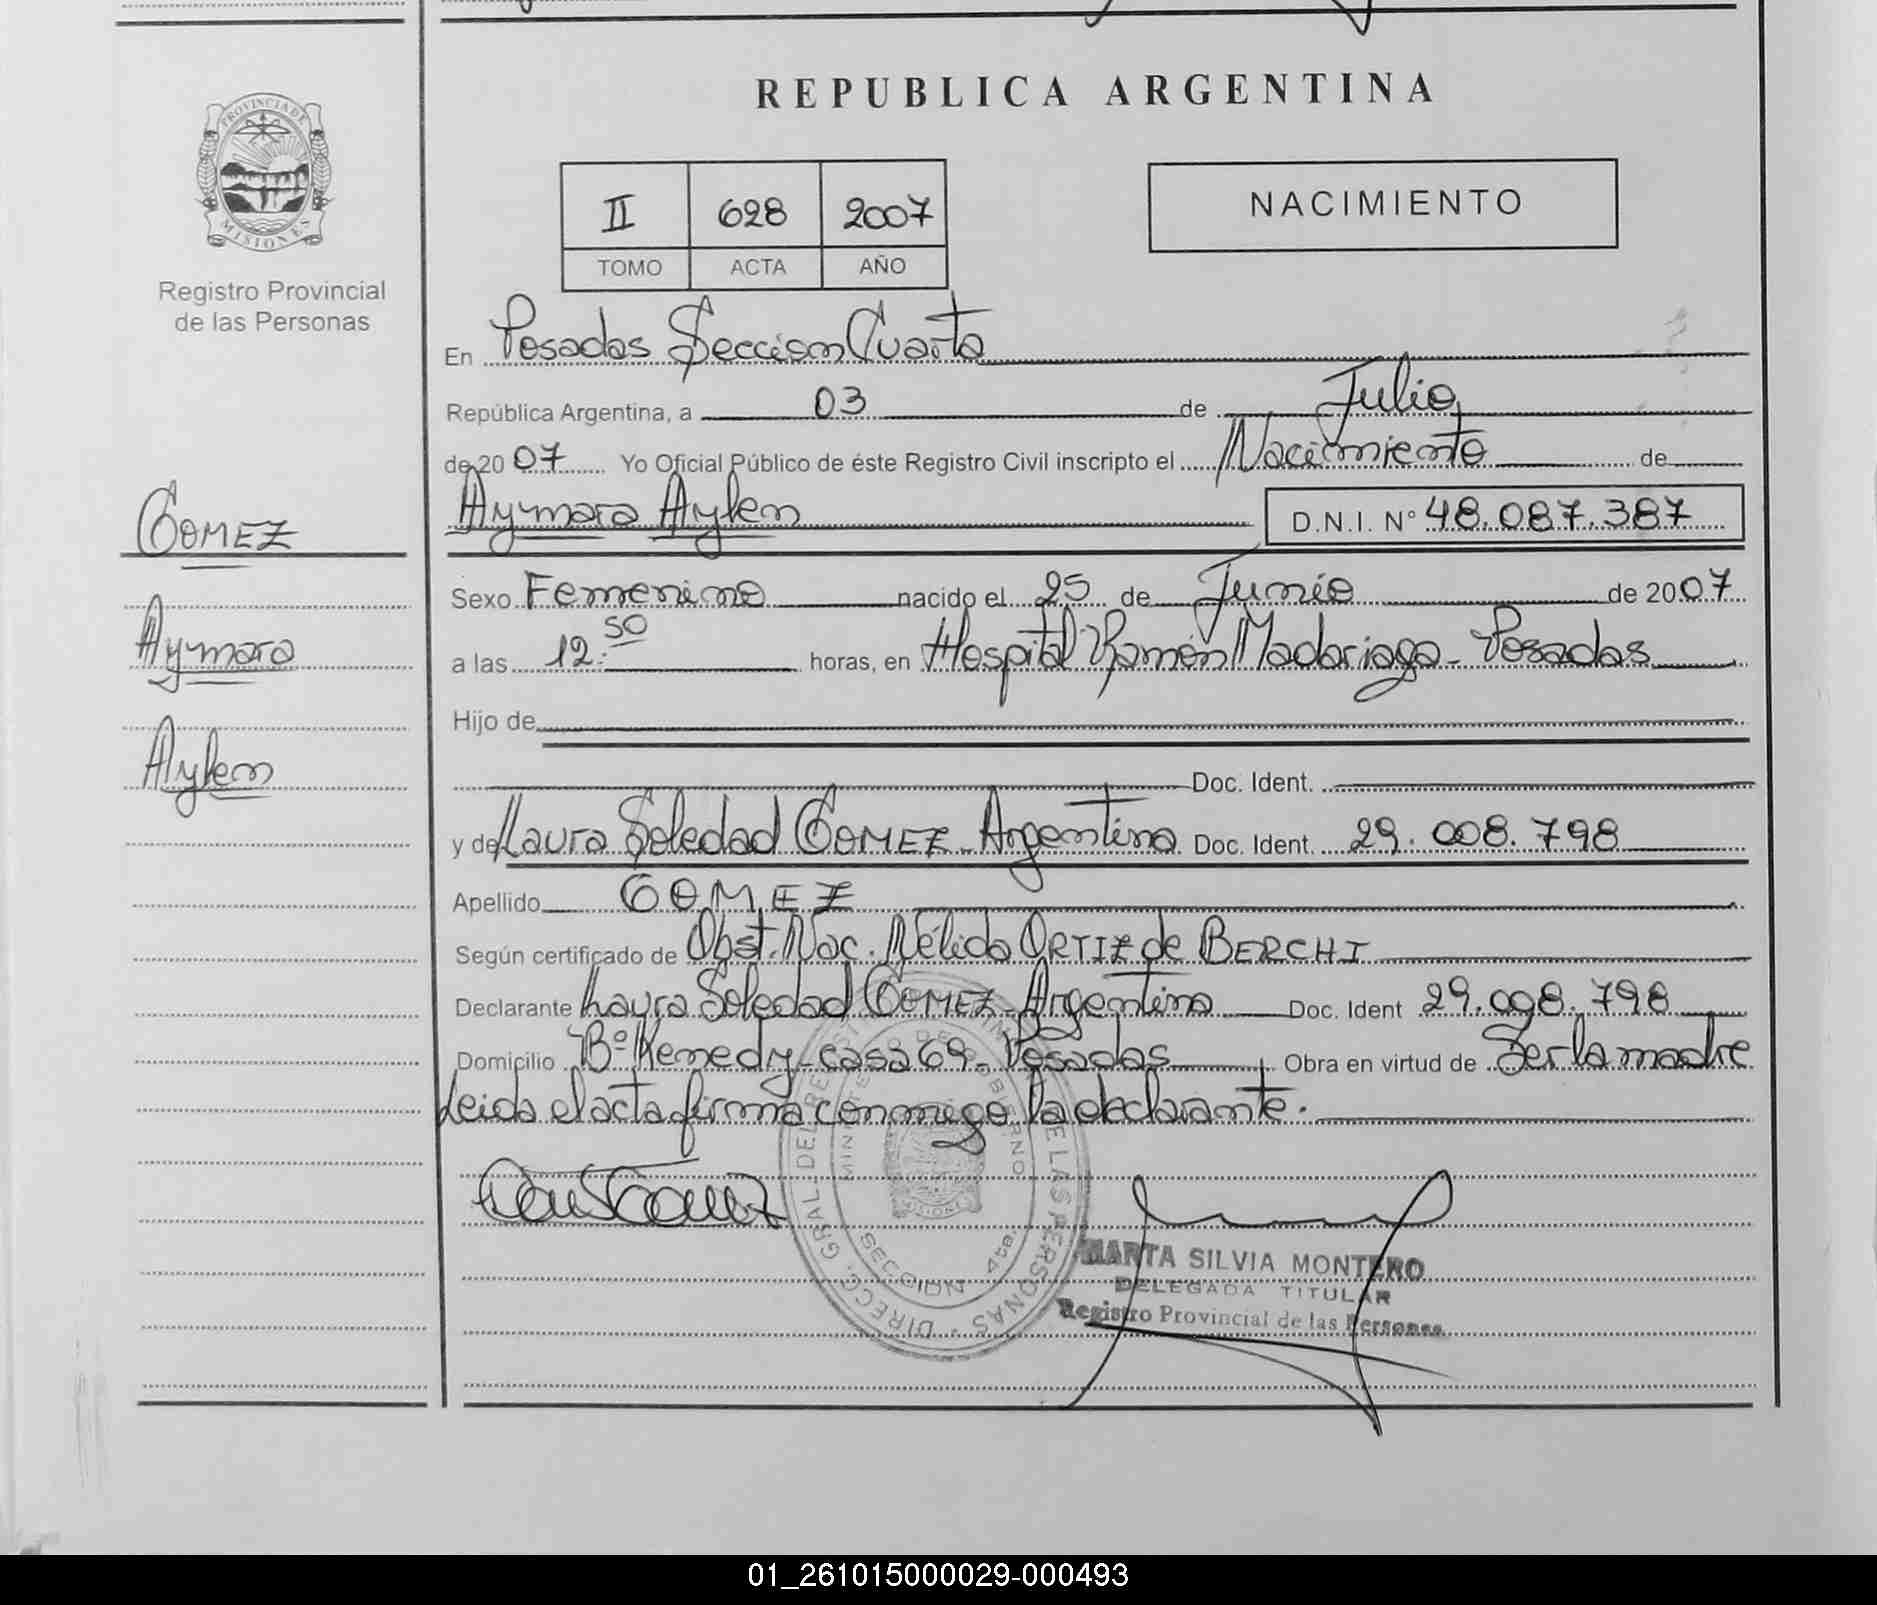 REPUBLICA ARGENTINA
PROVINCIA DE
MISIONES
Registro Provincial
de las Personas
II 628 2007
TOMO ACTA AÑO
NACIMIENTO
En Posadas Sección Cuarta
República Argentina, a 03 de Julio
de 2007 Yo Oficial Público de éste Registro Civil inscripto el Nacimiento de
GOMEZ
Aymara
Aylen
Aymara Aylen D.N.I. Nº 48.087.387
Sexo Femenino nacido el 25 de Junio de 2007
a las 12:50 horas, en Hospital Ramón Madariaga - Posadas
Hijo de
Doc. Ident.
y de Laura Soledad GOMEZ - Argentina Doc. Ident. 29.008.798
Apellido GOMEZ
Según certificado de Obst. Nac. Nélida ORTIZ de BERCHI
Declarante Laura Soledad GOMEZ - Argentina Doc. Ident 29.008.798
Domicilio Bº Kenedy - casa 69 - Posadas Obra en virtud de Ser la madre
Leida el acta firma conmigo la declarante.
DIRECC. GRAL. DEL REGISTRO DE LAS PERSONAS
MINISTERIO DE GOBIERNO
SECCION 4ta.
MARTA SILVIA MONTERO
DELEGADA TITULAR
Registro Provincial de las Personas
01_261015000029-000493